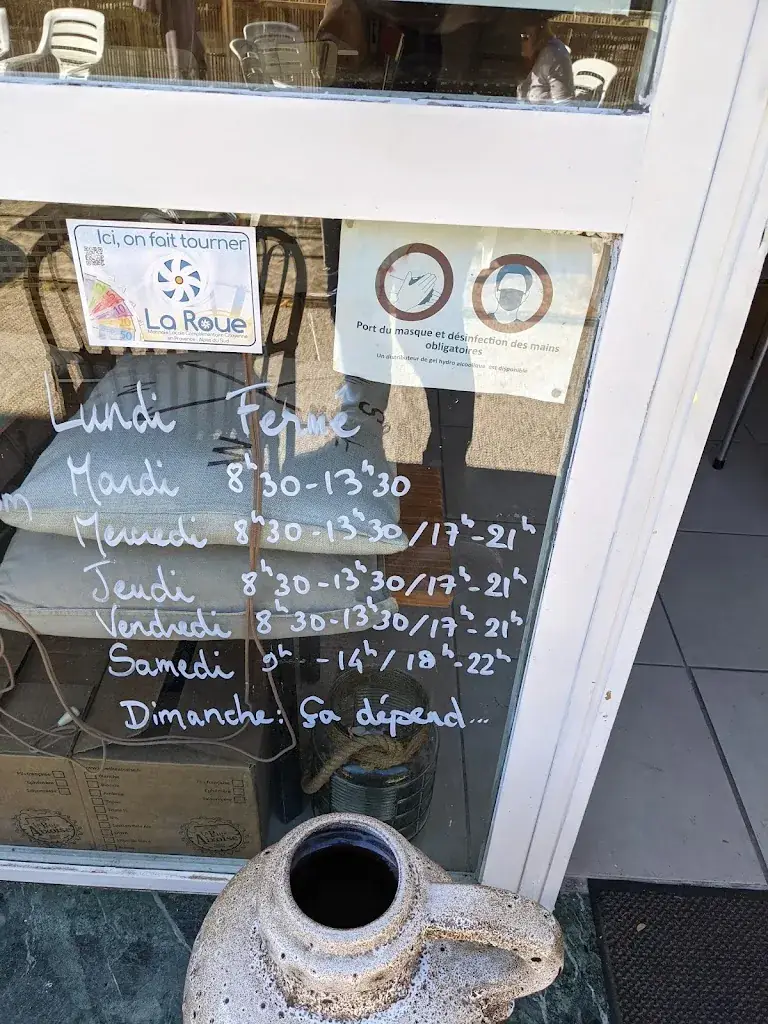 Ici, on fait tourner
La Roue
Monnaie Locale Complémentaire Citoyenne
en Provence Alpes du Sud
Port du masque et désinfection des mains
obligatoires
Un distributeur de gel hydro alcoolique est disponible
Lundi Fermé
Mardi 8h30-13h30
Mercredi 8h30-13h30/17h-21h
Jeudi 8h30-13h30/17h-21h
Vendredi 8h30-13h30/17h-21h
Samedi 9h-14h/18h-22h
Dimanche: Ça dépend...